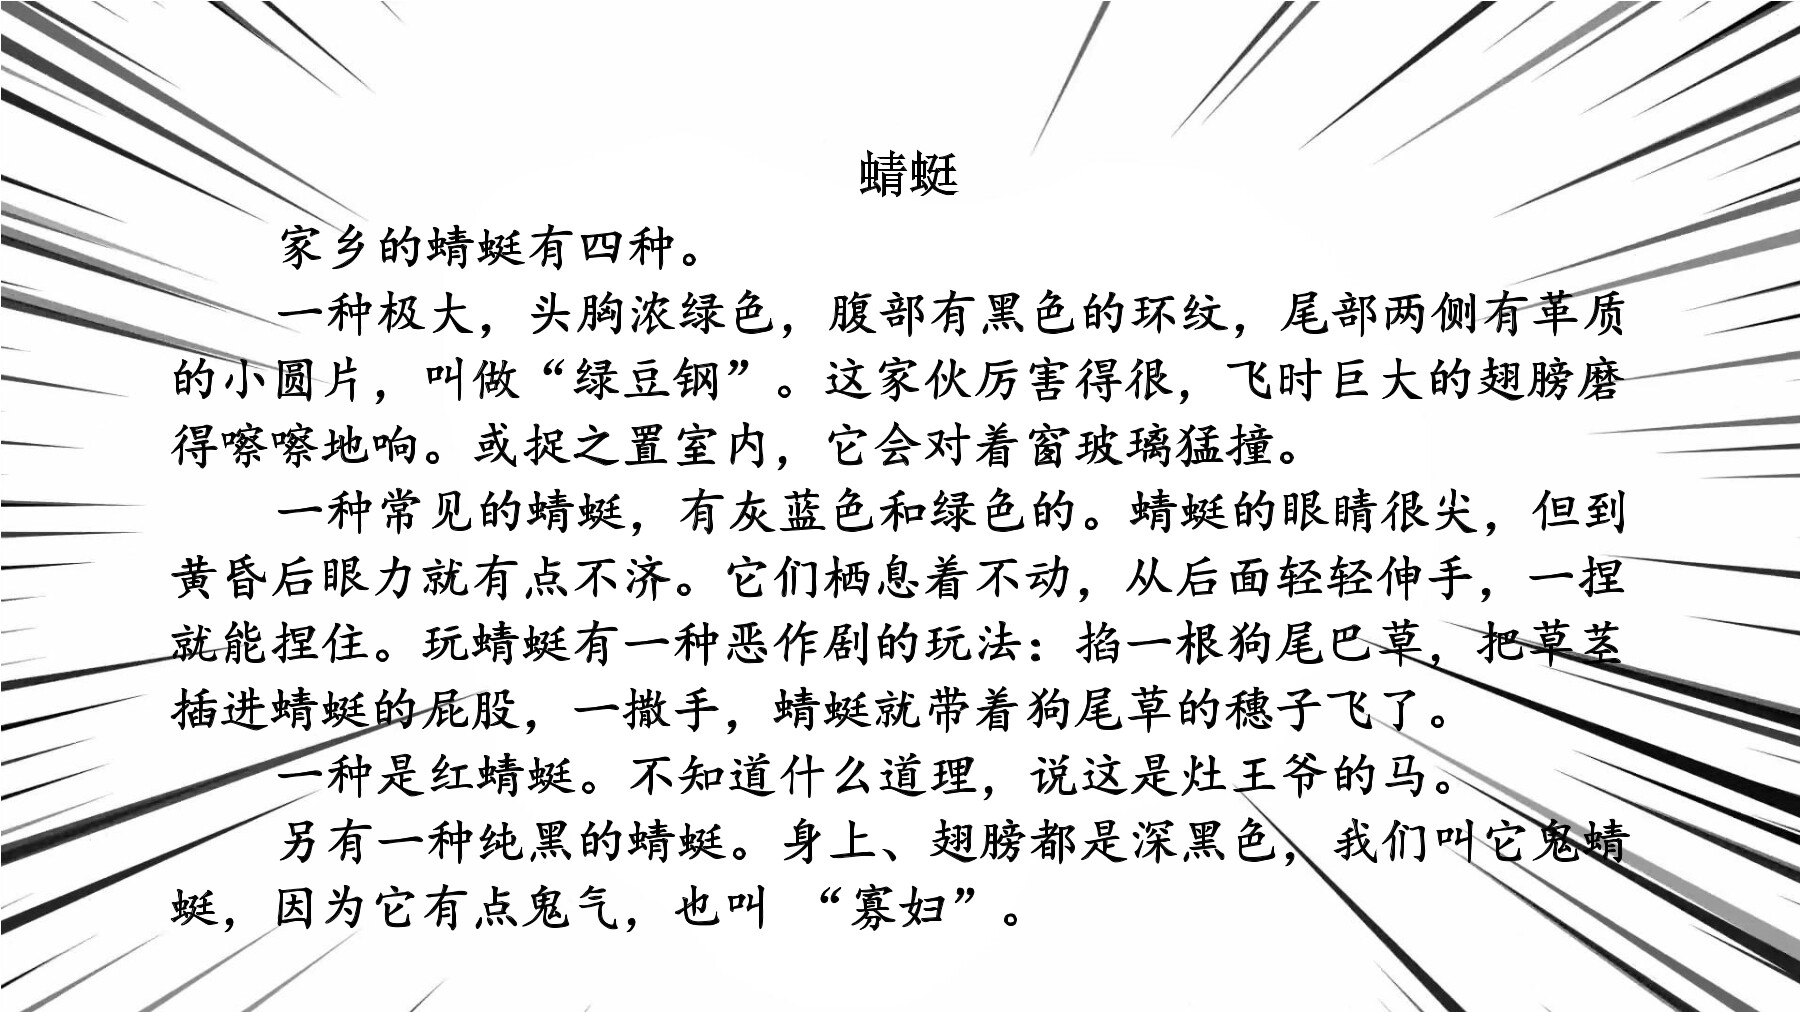 蜻蜓
家乡的蜻蜓有四种。
一种极大，头胸浓绿色，腹部有黑色的环纹，尾部两侧有革质
的小圆片，叫做“绿豆钢”。这家伙厉害得很，飞时巨大的翅膀磨
得嚓嚓地响。或捉之置室内，它会对着窗玻璃猛撞。
一种常见的蜻蜓，有灰蓝色和绿色的。蜻蜓的眼睛很尖，但到
黄昏后眼力就有点不济。它们栖息着不动，从后面轻轻伸手，一捏
就能捏住。玩蜻蜓有一种恶作剧的玩法：掐一根狗尾巴草，把草茎
插进蜻蜓的屁股，一撒手，蜻蜓就带着狗尾草的穗子飞了。
一种是红蜻蜓。不知道什么道理，说这是灶王爷的马。
另有一种纯黑的蜻蜓。身上、翅膀都是深黑色，我们叫它鬼蜻
蜓，因为它有点鬼气，也叫 “寡妇”。